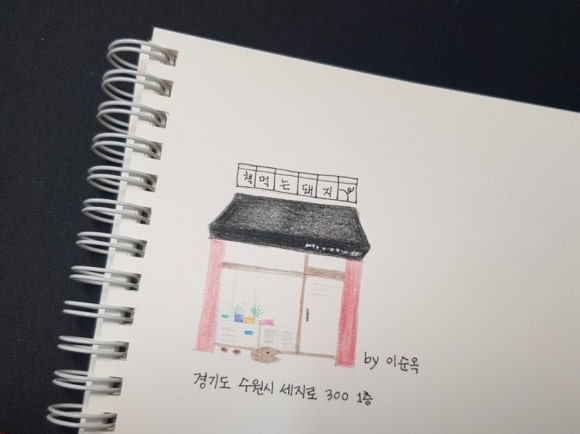 책먹는돼지
by 이순옥
경기도 수원시 세지로 300 1층